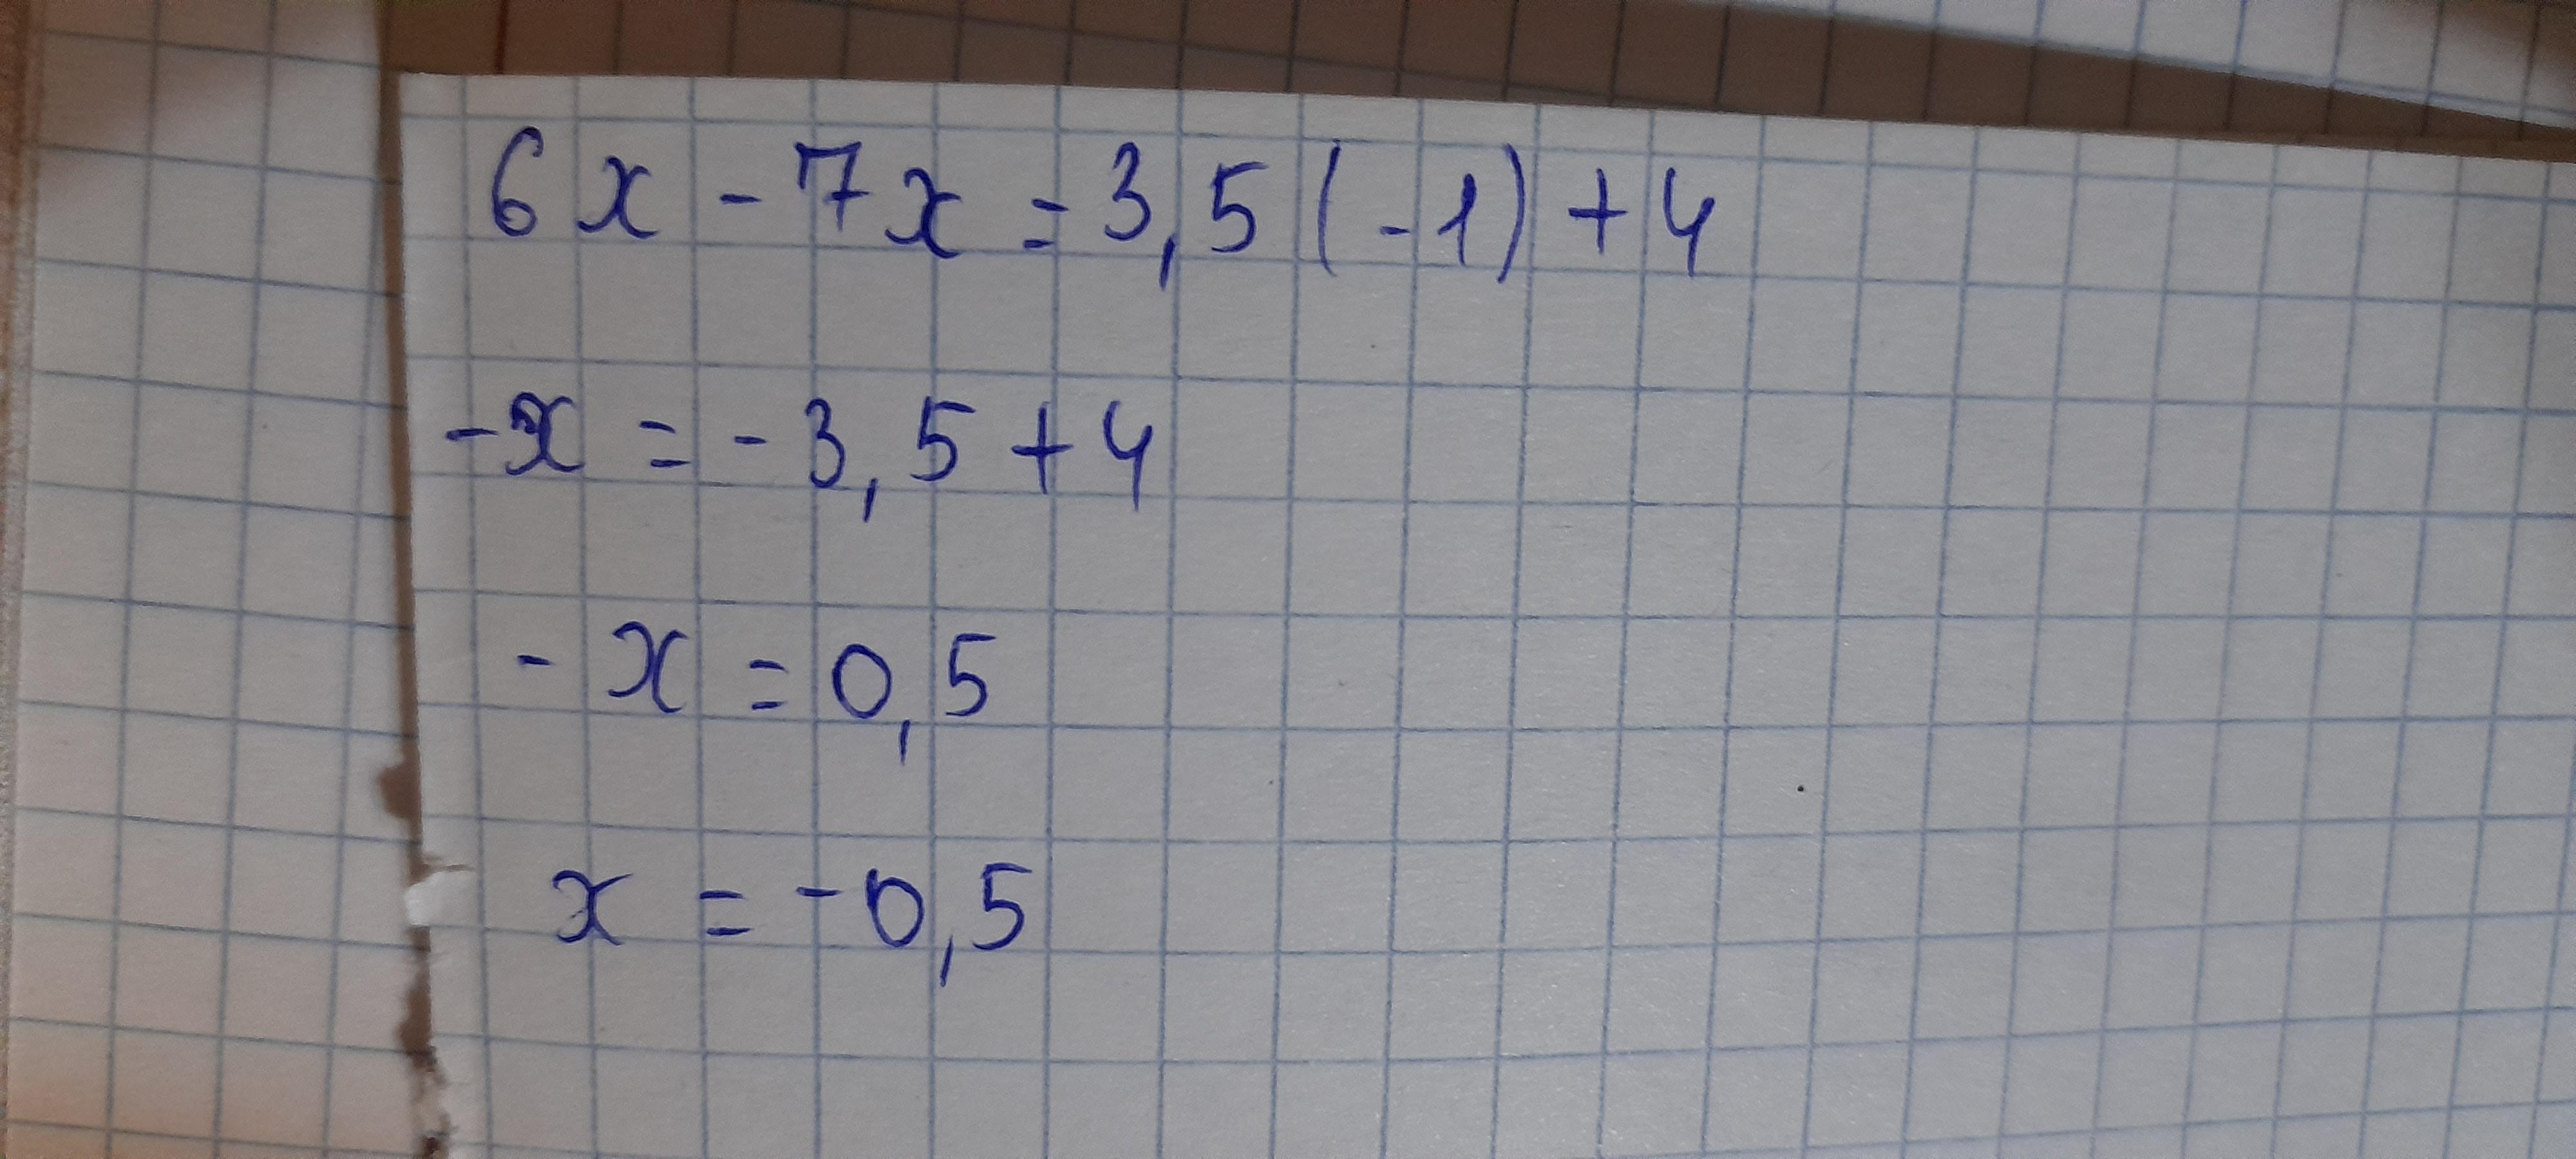 6x - 7x = 3,5(-1) + 4
-x = - 3,5 + 4
- x = 0,5
x = -0,5